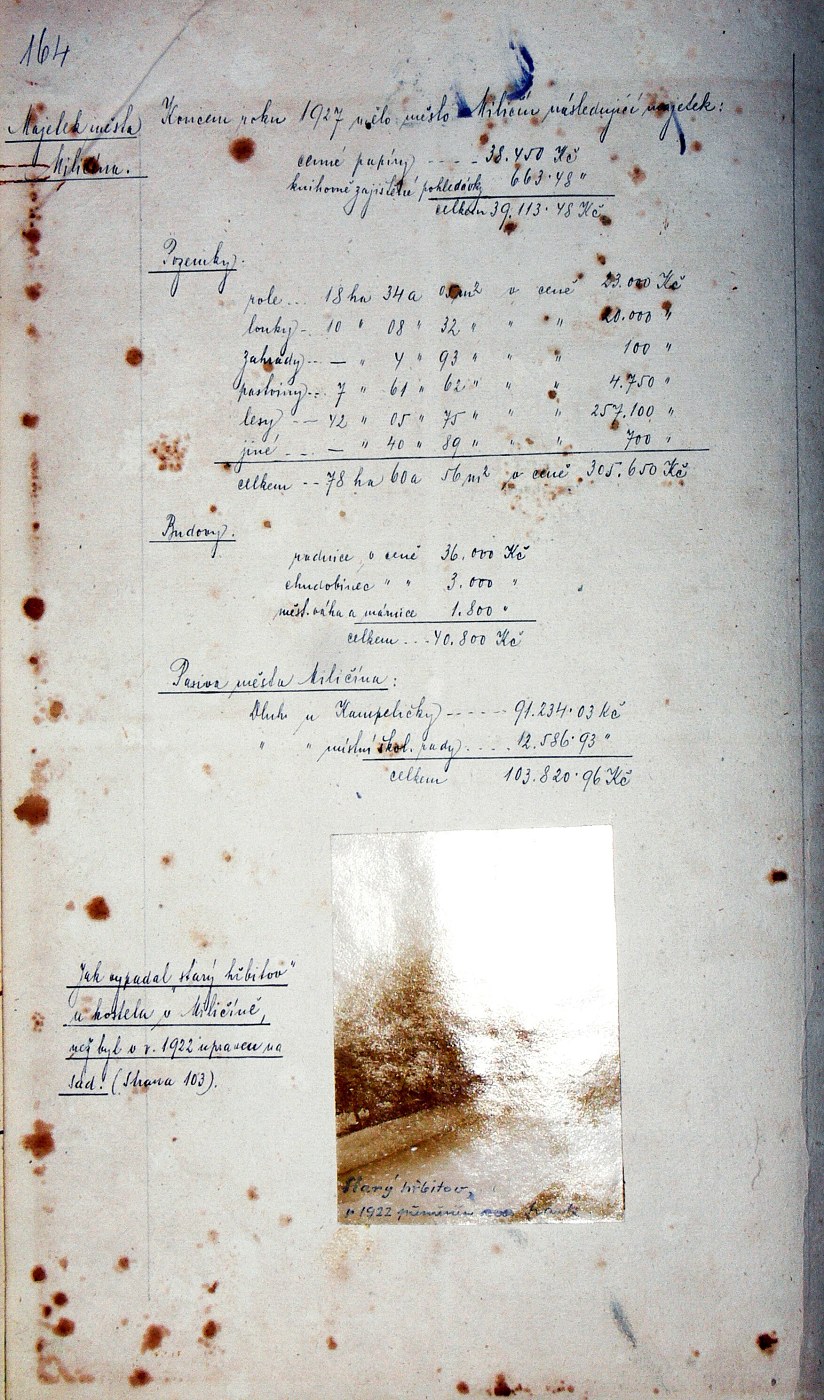 164
Majetek města
Miličína.
Koncem roku 1927 mělo město Miličín následující majetek:
cenné papíry ---- 38.450 Kč
knihovně zajištěné pohledávky 663·48 "
celkem 39.113·48 Kč
Pozemky.
role ... 18 ha 34 a 05 m² v ceně 23.000 Kč
louky -- 10 " 08 " 32 " " " 20.000 "
zahrady -- — " 4 " 93 " " " 100 "
pastviny -- 7 " 61 " 62 " " " 4.750 "
lesy -- 42 " 05 " 75 " " " 257.100 "
jiné ... — " 40 " 89 " " " 700 "
celkem -- 78 ha 60 a 56 m² v ceně 305.650 Kč
Budovy.
radnice v ceně 36.000 Kč
chudobinec " " 3.000 "
měst. váha a márnice 1.800 "
celkem ... 40.800 Kč
Pasiva města Miličína:
Dluh u Kampeličky ------ 91.234·03 Kč
" " místní škol. rady .... 12.586·93 "
celkem 103.820·96 Kč
Jak vypadal „starý hřbitov"
u kostela v Miličíně,
než byl v r. 1922 upraven na
sad. (Strana 103).
Starý hřbitov,
v 1922 přeměněn